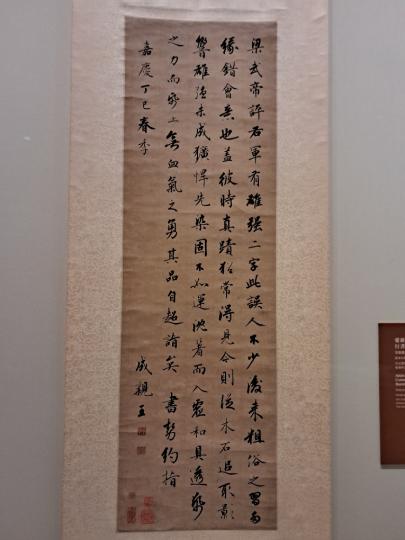 梁武帝評右軍有雄強二字此誤人不少後来粗俗之習多
緣錯會妄也蓋彼時真蹟猶常得見今則從木石追取影
響雄強未成獷悍先染固不如運沈著而入靈和具透紙
之力而紙上無血氣之勇其品自超詣矣 書勢約指
嘉慶丁巳春季
成親王